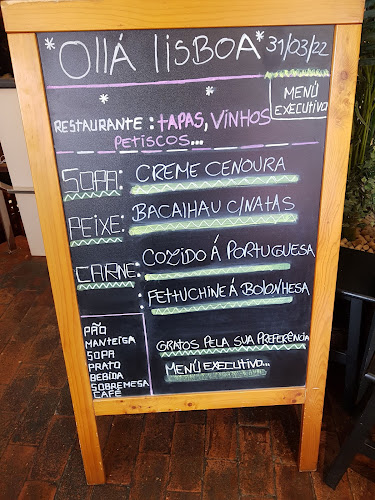 *OllÁ lISBOA*
31/03/22
MENÙ
EXECUTIVO
* *
RESTAURANTE: TAPAS, VINHOS
PETISCOS...
SOPA: CREME CENOURA
PEIXE: BACAlHAU C/NATAS
CARNE: COZIDO Á PORTUGUESA
: FETTUCHINE Á BOLONHESA
PÃO
MANTEIGA
SOPA
PRATO
BEBIDA
SOBREMESA
CAFÉ
GRATOS PELA SUA PREFERÊNCIA
MENÙ EXECUTIVO...